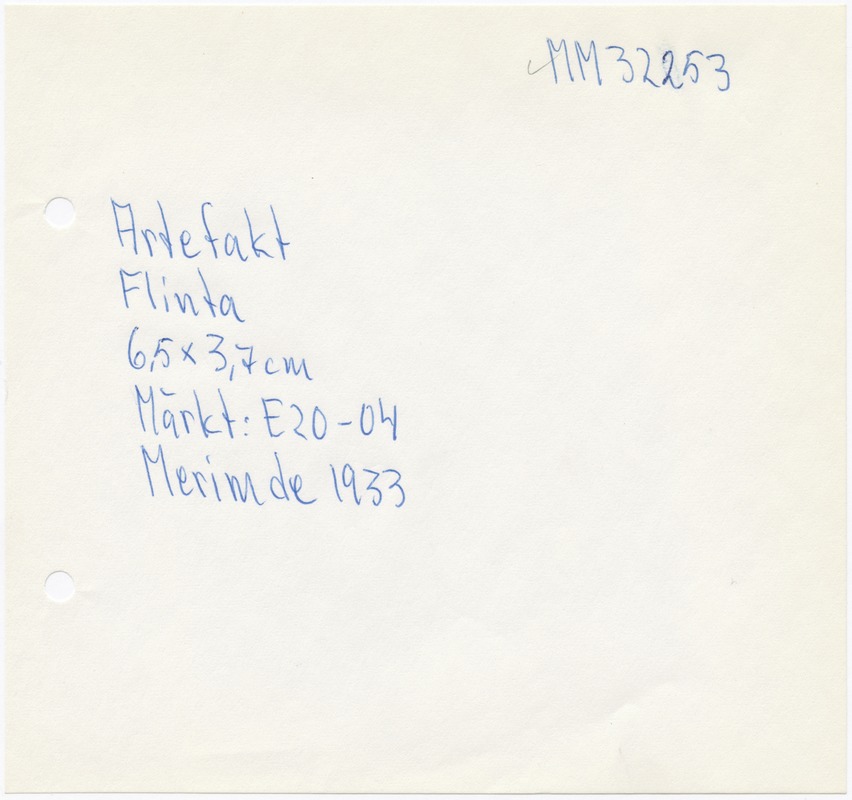 MM32253
Artefakt
Flinta
6,5 x 3,7 cm
Märkt: E20-04
Merimde 1933